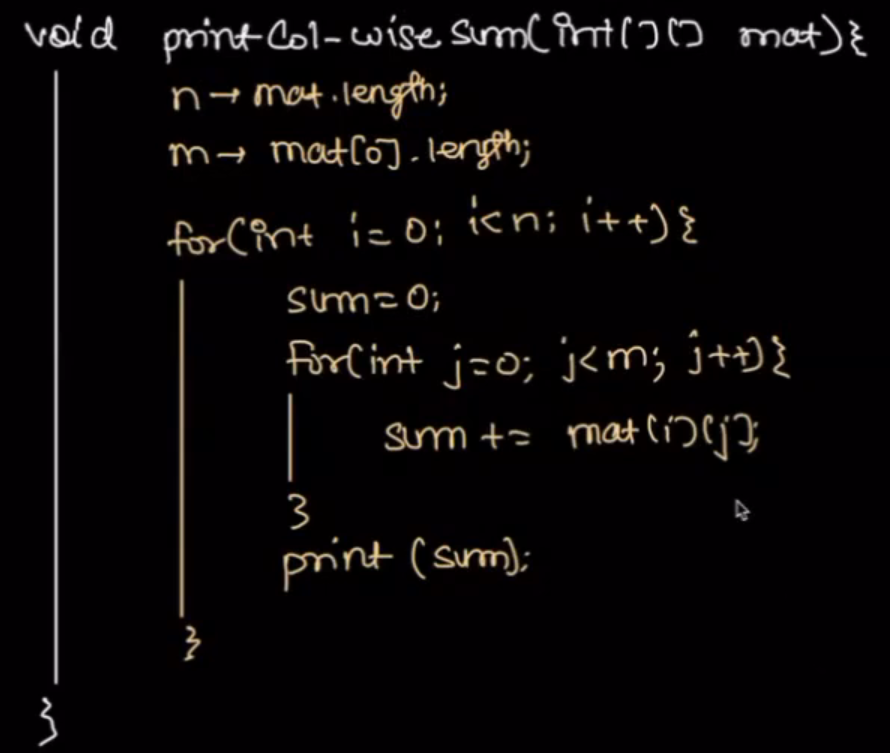 void print Col-wise Sum(int[][] mat){
n → mat.length;
m → mat[0].length;
for(int i=0; i<n; i++){
sum=0;
for(int j=0; j<m; j++){
sum += mat[i][j];
}
print (sum);
}
}